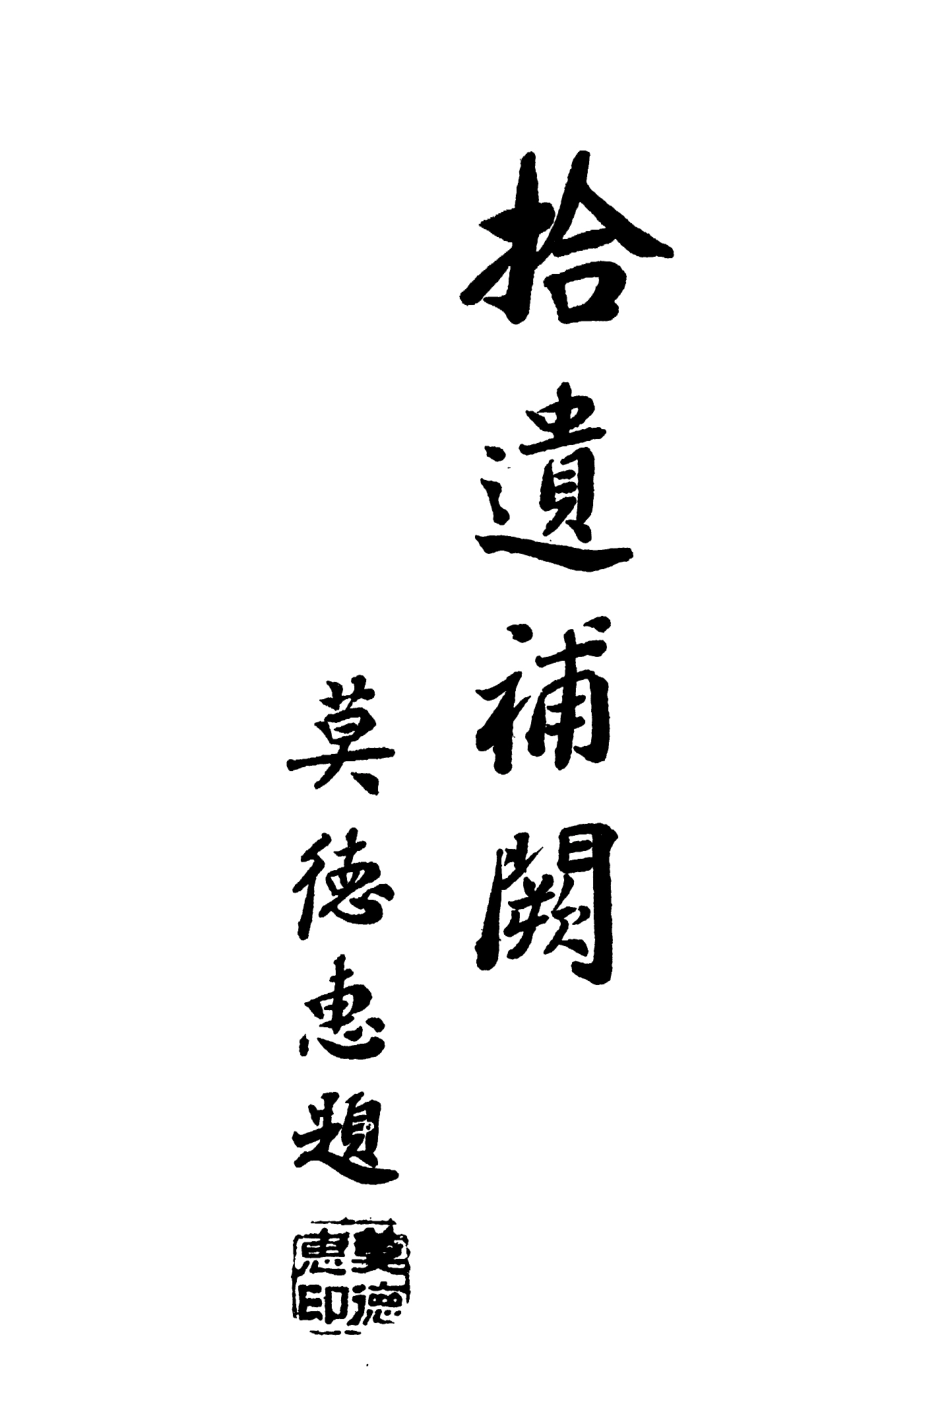 拾遺補闕
莫德惠題
莫德
惠印